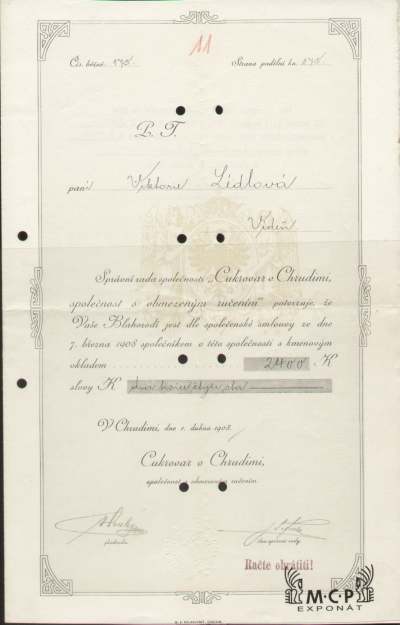 11
Čís. běžné 175. Strana podílní kn. 175.
P. T.
paní Viktorie Lídlová
Vídeň
Správní rada společnosti „Cukrovar v Chrudimi,
společnost s obmezeným ručením" potvrzuje, že
Vaše Blahorodí jest dle společenské smlouvy ze dne
7. března 1908 společníkem v této společnosti s kmenovým
vkladem 2400 K
slovy K dva tisíce čtyři sta
V Chrudimi, dne 1. dubna 1908.
Cukrovar v Chrudimi,
společnost s obmezeným ručením
předseda
člen správní rady
Račte obrátiti!
M·C·P
EXPONÁT